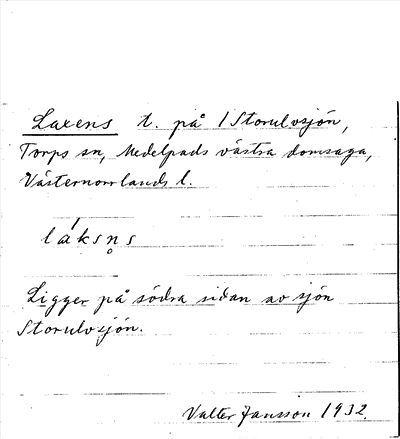 Laxens t. på / Storulvsjön,
Torps sn, Medelpads västra domsaga,
Västernorrlands l.
láksn̥s
Ligger på södra sidan av sjön
Storulvsjön.
Valter Jansson 1932.